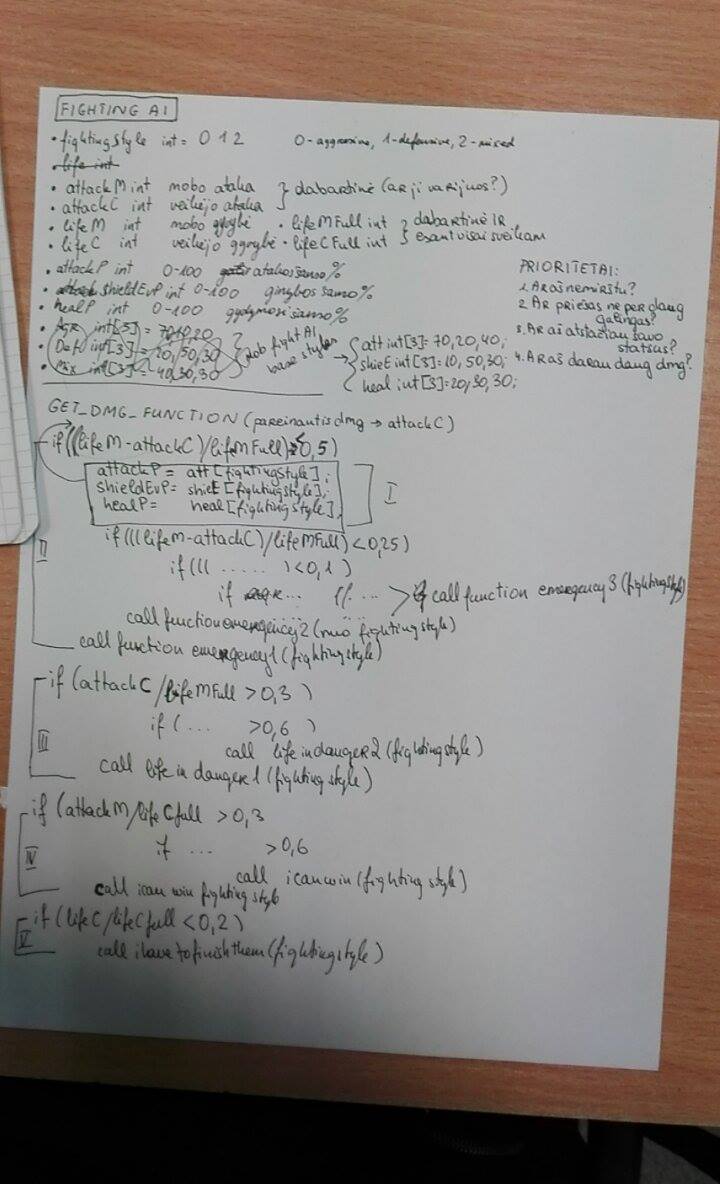 FIGHTING AI
• fightingStyle int = 0 1 2 0-aggressive, 1-defensive, 2-mixed
• life int
• attackM int mobo ataka } dabartinė (ar ji varijuos?)
• attackC int veikėjo ataka
• lifeM int mobo gyvybė • lifeMFull int } dabartinė IR
• lifeC int veikėjo gyvybė • lifeCFull int } esant visai sveikam
• attackP int 0-100 atakos šanso %
• shieldEvP int 0-100 gynybos šanso %
• healP int 0-100 gydymosi šanso %
• Agr int[3] = 70,10,20
• Def int[3] = 20,50,30
• Mix int[3] = 40,30,30
} Mob fight AI
base styles
→ { att int[3] = 70, 20, 40;
shieE int[3] = 10, 50, 30;
heal int[3] = 20, 30, 30;
PRIORITETAI:
1. Ar aš nemirštu?
2. Ar priešas ne per daug
galingas?
3. Ar aš atstačiau savo
statsus?
4. Ar aš darau daug dmg?
GET_DMG_FUNCTION (pareinantis dmg → attackC)
if((lifeM-attackC)/lifeMFull) < 0,5)
attackP = att [fightingstyle];
shieldEvP = shieE [fightingstyle];
healP = heal [fightingstyle];
I
II
if(((lifeM-attackC)/lifeMFull) < 0,25)
if((( ..... ) < 0,1)
if ... call function emergency3 (fightingstyle)
call function emergency2 (fightingstyle)
call function emergency1 (fightingstyle)
if (attackC/lifeMFull > 0,3)
if (... > 0,6)
III
call lifeindanger2 (fightingstyle)
call life in danger1 (fightingstyle)
if (attackM/lifeCfull > 0,3
if ... > 0,6
IV
call icanwin (fighting style)
call ican win fighting style
if (lifeC/lifeCfull < 0,2)
V
call ihavetofinishthem (fightingstyle)